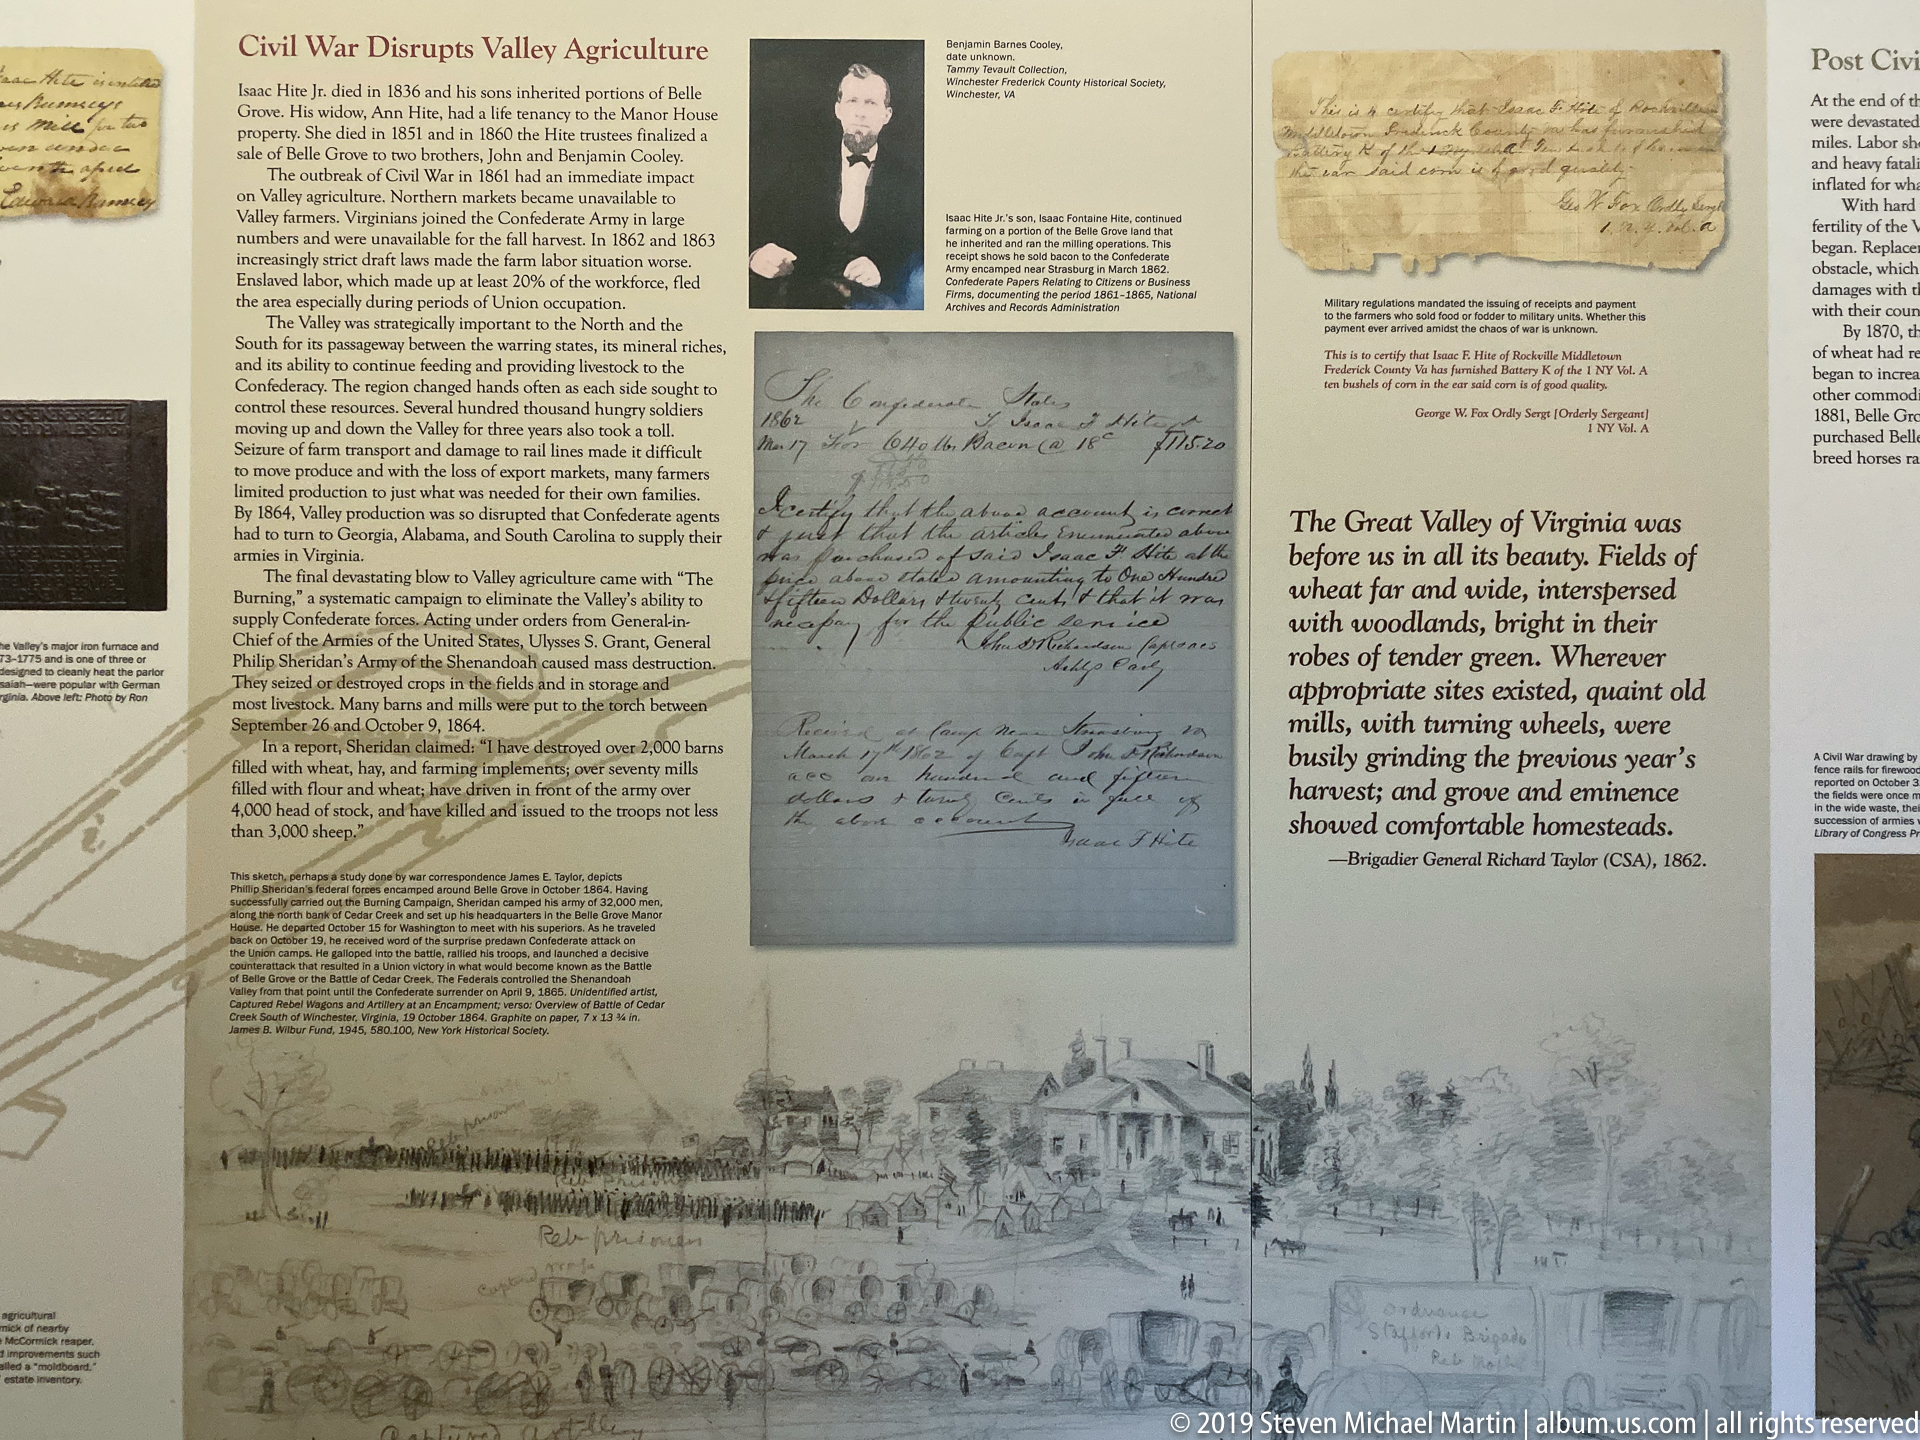 aac Hite is entitled
Rumseys
Mill for two
under
april
Edward Rumsey
he Valley's major iron furnace and
73–1775 and is one of three or
designed to cleanly heat the parlor
saiah—were popular with German
rginia. Above left: Photo by Ron
agricultural
mick of nearby
McCormick reaper.
d improvements such
alled a "moldboard."
estate inventory.
Civil War Disrupts Valley Agriculture
Isaac Hite Jr. died in 1836 and his sons inherited portions of Belle
Grove. His widow, Ann Hite, had a life tenancy to the Manor House
property. She died in 1851 and in 1860 the Hite trustees finalized a
sale of Belle Grove to two brothers, John and Benjamin Cooley.
The outbreak of Civil War in 1861 had an immediate impact
on Valley agriculture. Northern markets became unavailable to
Valley farmers. Virginians joined the Confederate Army in large
numbers and were unavailable for the fall harvest. In 1862 and 1863
increasingly strict draft laws made the farm labor situation worse.
Enslaved labor, which made up at least 20% of the workforce, fled
the area especially during periods of Union occupation.
The Valley was strategically important to the North and the
South for its passageway between the warring states, its mineral riches,
and its ability to continue feeding and providing livestock to the
Confederacy. The region changed hands often as each side sought to
control these resources. Several hundred thousand hungry soldiers
moving up and down the Valley for three years also took a toll.
Seizure of farm transport and damage to rail lines made it difficult
to move produce and with the loss of export markets, many farmers
limited production to just what was needed for their own families.
By 1864, Valley production was so disrupted that Confederate agents
had to turn to Georgia, Alabama, and South Carolina to supply their
armies in Virginia.
The final devastating blow to Valley agriculture came with "The
Burning," a systematic campaign to eliminate the Valley's ability to
supply Confederate forces. Acting under orders from General-in-
Chief of the Armies of the United States, Ulysses S. Grant, General
Philip Sheridan's Army of the Shenandoah caused mass destruction.
They seized or destroyed crops in the fields and in storage and
most livestock. Many barns and mills were put to the torch between
September 26 and October 9, 1864.
In a report, Sheridan claimed: "I have destroyed over 2,000 barns
filled with wheat, hay, and farming implements; over seventy mills
filled with flour and wheat; have driven in front of the army over
4,000 head of stock, and have killed and issued to the troops not less
than 3,000 sheep."
This sketch, perhaps a study done by war correspondence James E. Taylor, depicts
Phillip Sheridan's federal forces encamped around Belle Grove in October 1864. Having
successfully carried out the Burning Campaign, Sheridan camped his army of 32,000 men,
along the north bank of Cedar Creek and set up his headquarters in the Belle Grove Manor
House. He departed October 15 for Washington to meet with his superiors. As he traveled
back on October 19, he received word of the surprise predawn Confederate attack on
the Union camps. He galloped into the battle, rallied his troops, and launched a decisive
counterattack that resulted in a Union victory in what would become known as the Battle
of Belle Grove or the Battle of Cedar Creek. The Federals controlled the Shenandoah
Valley from that point until the Confederate surrender on April 9, 1865. Unidentified artist,
Captured Rebel Wagons and Artillery at an Encampment; verso: Overview of Battle of Cedar
Creek South of Winchester, Virginia, 19 October 1864. Graphite on paper, 7 x 13 ¾ in.
James B. Wilbur Fund, 1945, 580.100, New York Historical Society.
Benjamin Barnes Cooley,
date unknown.
Tammy Tevault Collection,
Winchester Frederick County Historical Society,
Winchester, VA
Isaac Hite Jr.'s son, Isaac Fontaine Hite, continued
farming on a portion of the Belle Grove land that
he inherited and ran the milling operations. This
receipt shows he sold bacon to the Confederate
Army encamped near Strasburg in March 1862.
Confederate Papers Relating to Citizens or Business
Firms, documenting the period 1861–1865, National
Archives and Records Administration
The Confederate States
1862 To Isaac F Hite
Mar 17 For 640 lbs Bacon @ 18c $115.20
I certify that the above account is correct
& just that the articles enumerated above
was purchased of said Isaac F. Hite at the
price above stated amounting to One Hundred
& fifteen Dollars & twenty cents & that it was
for the public service
John D Richardson Capt
Ashbys Cavly
Received at Camp near Strasburg Va
March 17th 1862 of Capt John D Richardson
one hundred and fifteen
dollars & twenty cents in full of
the above account
Isaac F Hite
This is to certify that Isaac F. Hite of Rockville
Middletown Frederick County Va has furnished
Battery K of the 1 Ten bushels of corn in
the ear said corn is of good quality.
Geo W Fox Ordly Sergt
1. N.Y. Vol. A
Military regulations mandated the issuing of receipts and payment
to the farmers who sold food or fodder to military units. Whether this
payment ever arrived amidst the chaos of war is unknown.
This is to certify that Isaac F. Hite of Rockville Middletown
Frederick County Va has furnished Battery K of the 1 NY Vol. A
ten bushels of corn in the ear said corn is of good quality.
George W. Fox Ordly Sergt [Orderly Sergeant]
1 NY Vol. A
The Great Valley of Virginia was
before us in all its beauty. Fields of
wheat far and wide, interspersed
with woodlands, bright in their
robes of tender green. Wherever
appropriate sites existed, quaint old
mills, with turning wheels, were
busily grinding the previous year's
harvest; and grove and eminence
showed comfortable homesteads.
—Brigadier General Richard Taylor (CSA), 1862.
Post Civi
At the end of th
were devastated
miles. Labor sho
and heavy fatali
inflated for wha
With hard
fertility of the V
began. Replacer
obstacle, which
damages with th
with their coun
By 1870, th
of wheat had re
began to increa
other commodi
1881, Belle Gro
purchased Belle
breed horses ra
A Civil War drawing by
fence rails for firewood
reported on October 3
the fields were once m
in the wide waste, thei
succession of armies v
Library of Congress Pr
Reb prisoners
Reb prisoners
Captured
Ordnance
Staffords Brigade
Reb
Captured artillery
© 2019 Steven Michael Martin | album.us.com | all rights reserved